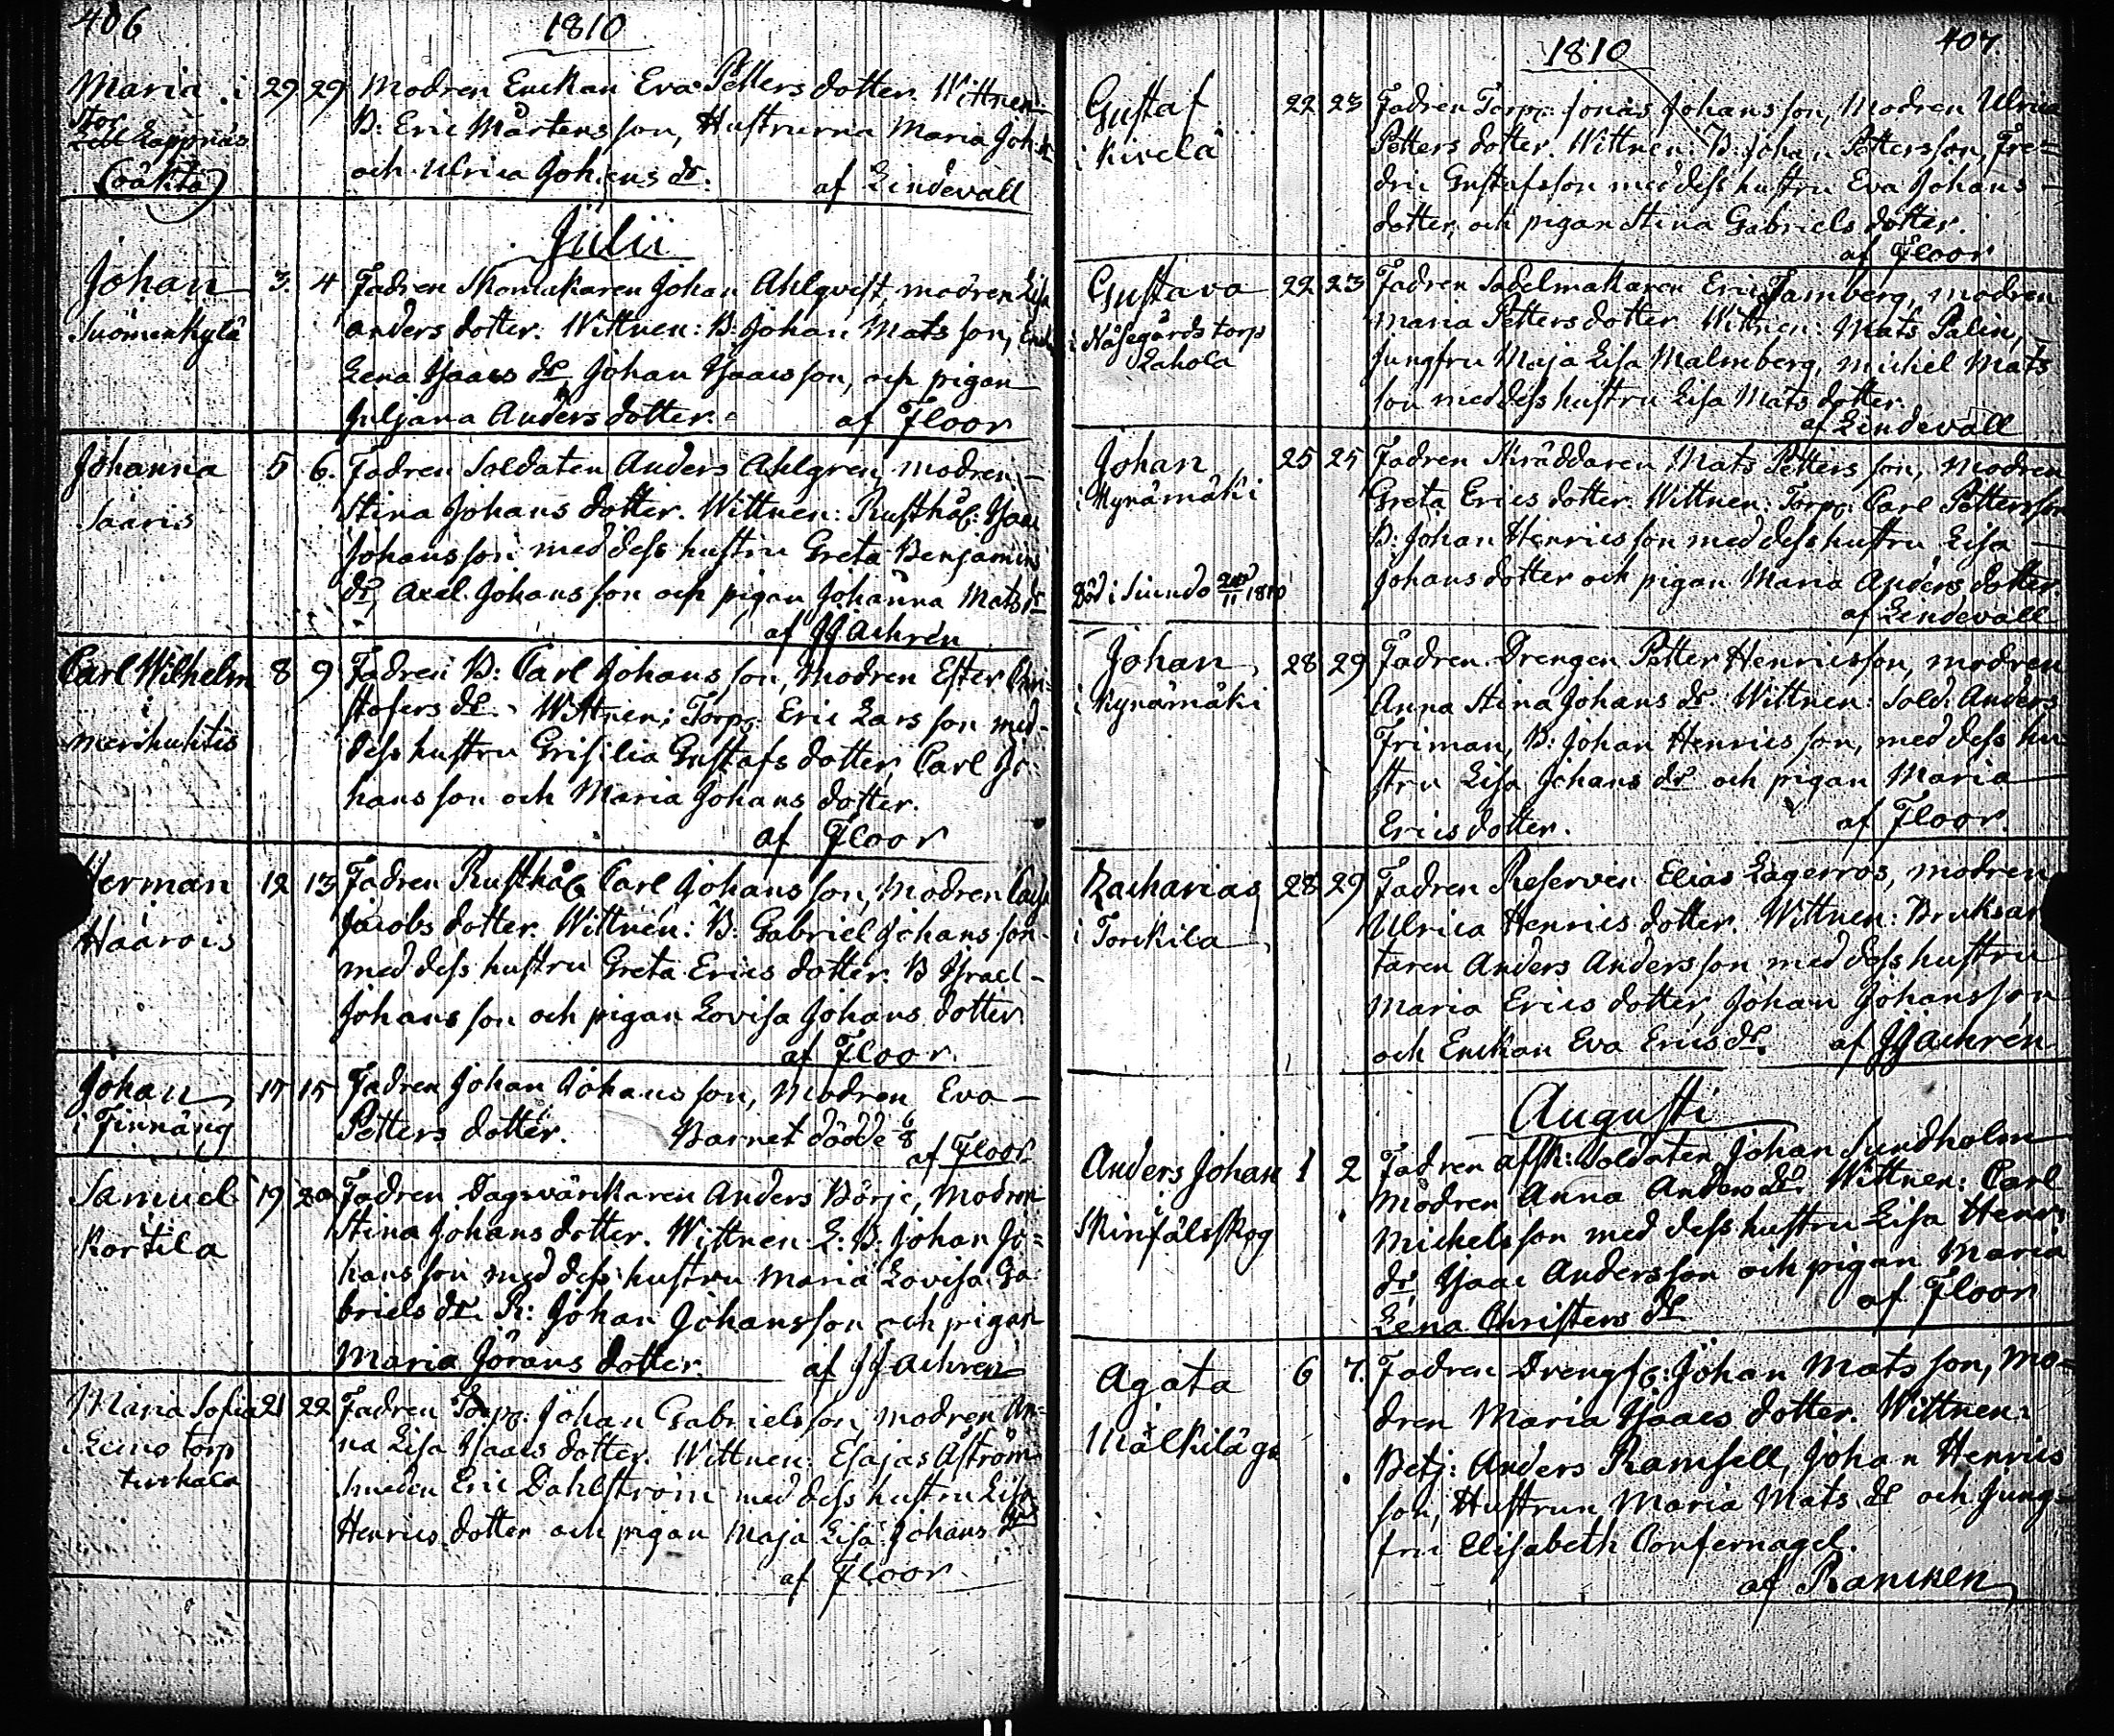 406
1810
Maria i 29 29 Modren Enckan Eva Petters dotter. Wittnen
Stor
Lill Lappnäs B: Eric Mårtens son, Hustrurna Maria Joh. dr
(oäkta) och Ulrica Johans dr. af Lindevall
Julii
Johan 3. 4 Fadren Skomakaren Johan Ahlqvist, modren Lisa
Suomenkylä Anders dotter. Wittnen: B: Johan Mats son, Enck
Lena Isaacs dr, Johan Isaacsson, och pigan
Juljana Anders dotter. af Floor
Johanna 5 6. Fadren Soldaten Anders Ahlgren, modren
Saaris Stina Johans dotter. Wittnen: Rusthål: Isaac
Johansson med dess hustru Greta Benjamins
dr, Axel Johansson och pigan Johanna Mats dr
af JJ Achrén
Carl Wilhelm 8 9 Fadren B: Carl Johansson, Modren Ester Chri-
i stofers dr. Wittnen: Torpr. Eric Larsson med
Merikulitis dess hustru Grisilia Gustafs dotter, Carl Jo-
hansson och Maria Johans dotter.
af Floor
Herman 12 13 Fadren Rusthål Carl Johansson, Modren Caisa
i Jacobs dotter. Wittnen: B: Gabriel Johansson
Haarois med dess hustru Greta Erics dotter. B Israel
Johansson och pigan Lovisa Johans dotter
af Floor.
Johan 15 15 Fadren Johan Johansson, Modren Eva
i Finnäng Petters dotter. Barnet dödde 6/8
af Floor
Samuel 19 20 Fadren Dagsvärkaren Anders Börje, Modren
i Stina Johans dotter. Wittnen: L: B: Johan Jo-
Kortila hansson med dess hustru Maria Lovisa Ga
briels dr. R: Johan Johansson och pigan
Maria Jörans dotter. af JJ Achren
Maria Sofia 21 22 Fadren Torpr: Johan Gabrielsson, modren An-
i Leino torp na Lisa Isaacs dotter. Wittnen: Esajas Åström
Turkala smeden Eric Dahlström med dess hustru Lisa
Henrics dotter och pigan Maja Lisa Johans dr
af Floor
407
1810
Gustaf 22 23 Fadren Torpr: Jonas Johansson, Modren Ulrica
i Kivelä Petters dotter. Wittnen: B: Johan Pettersson, Fre-
dric Gustafsson med dess hustru Eva Johans
dotter, och pigan Stina Gabriels dotter.
af Floor
Gustava 22 23 Fadren Sadelmakaren Eric Tamberg, modren
i Näsegårds torp Maria Petters dotter. Wittnen: Mats Palin,
Lahola Jungfru Maja Lisa Malmberg, Michel Mats
son med dess hustru Lisa Mats dotter.
af Lindevall
Johan 25 25 Fadren Skräddaren Mats Petters son, Modren
i Kynämäki Greta Erics dotter. Wittnen: Torpr: Carl Pettersson
B: Johan Henricsson med dess hustru Lisa
Död i Suindo 20/11 1810 Johans dotter och pigan Maria Anders dotter.
af Lindevall
Johan 28 29 Fadren Drengen Petter Henricsson, modren
i Kynämäki Anna Stina Johans dr. Wittnen: Sold: Anders
Friman, B: Johan Henrics son, med dess hu
stru Lisa Johans dr och pigan Maria
Erics dotter. af Floor.
Zacharias 28 29 Fadren Reserven Elias Lagerros, modren
i Torckila Ulrica Henrics dotter. Wittnen: Bruksar
taren Anders Andersson med dess hustru
Maria Erics dotter, Johan Johansson
och Enckan Eva Erics dr. af JJ Achrén
Augusti
Anders Johan 1 2 Fadren afsk: Soldaten Johan Sundholm
i Modren Anna Anders dr. Wittnen: Carl
Skinfälsskog Michelsson med dess hustru Lisa Henr:
dr, Isaac Andersson och pigan Maria
Lena Christers dr af Floor
Agata 6 7. Fadren Drengsl: Johan Matsson, Mo-
i dren Maria Isaacs dotter. Wittnen:
Mälkiläga Betj: Anders Ramsell, Johan Henrics
son, Hustrun Maria Mats dr och Jung-
fru Elisabeth Confernagel.
af Rancken